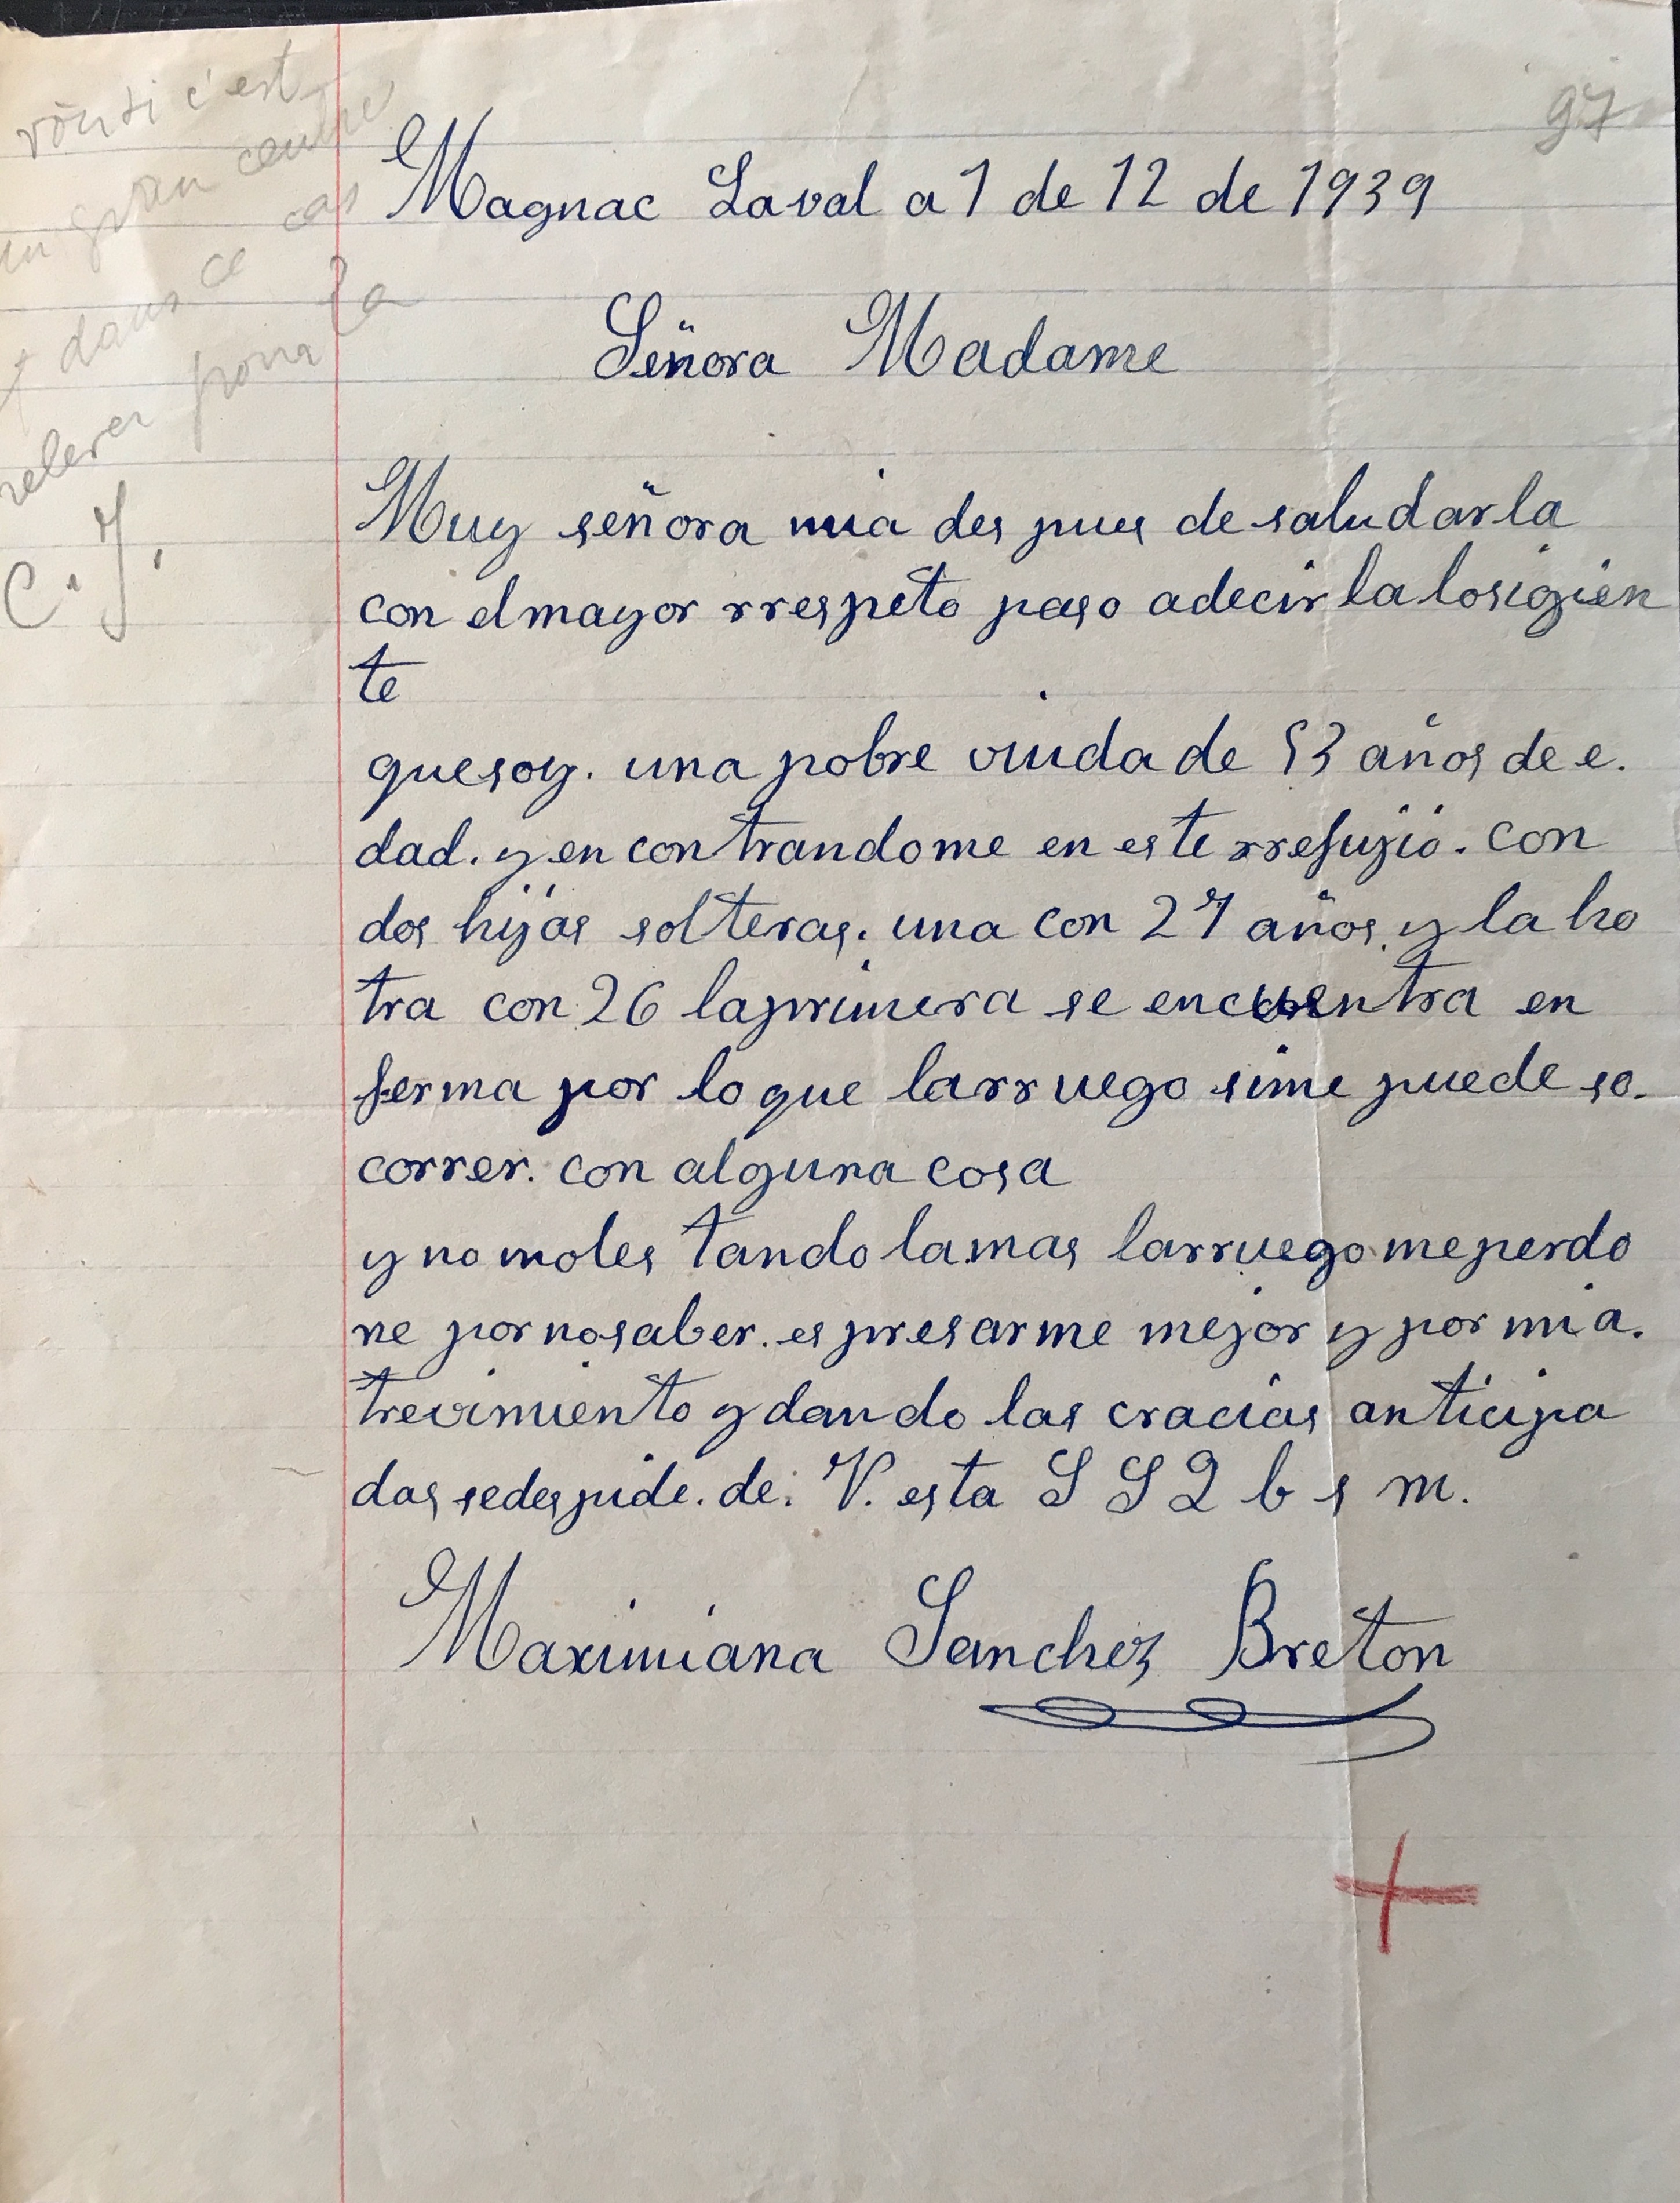 voir si c'est
un gran centre
et dans ce cas
relever pour la
C. J.
97
Magnac Laval a 1 de 12 de 1939
Señora Madame
Muy señora mia des pues de saludarla
con elmayor rrespeto paso adecir la losigien
te
quesoy. una pobre viuda de 53 años de e.
dad. y en con trandome en es te rrefujio. con
dos hijas solteras. una con 27 años y la ho
tra con 26 laprimera se encuentra en
ferma por lo que larruego sime puede so.
correr. con alguna cosa
y no moles tando la mas larruego me perdo
ne por nosaber. espresarme mejor y por mi a.
trevimiento y dando las cracias anticipa
das sedespide. de. V. esta S S Q b s m.
Maximiana Sanchez Breton